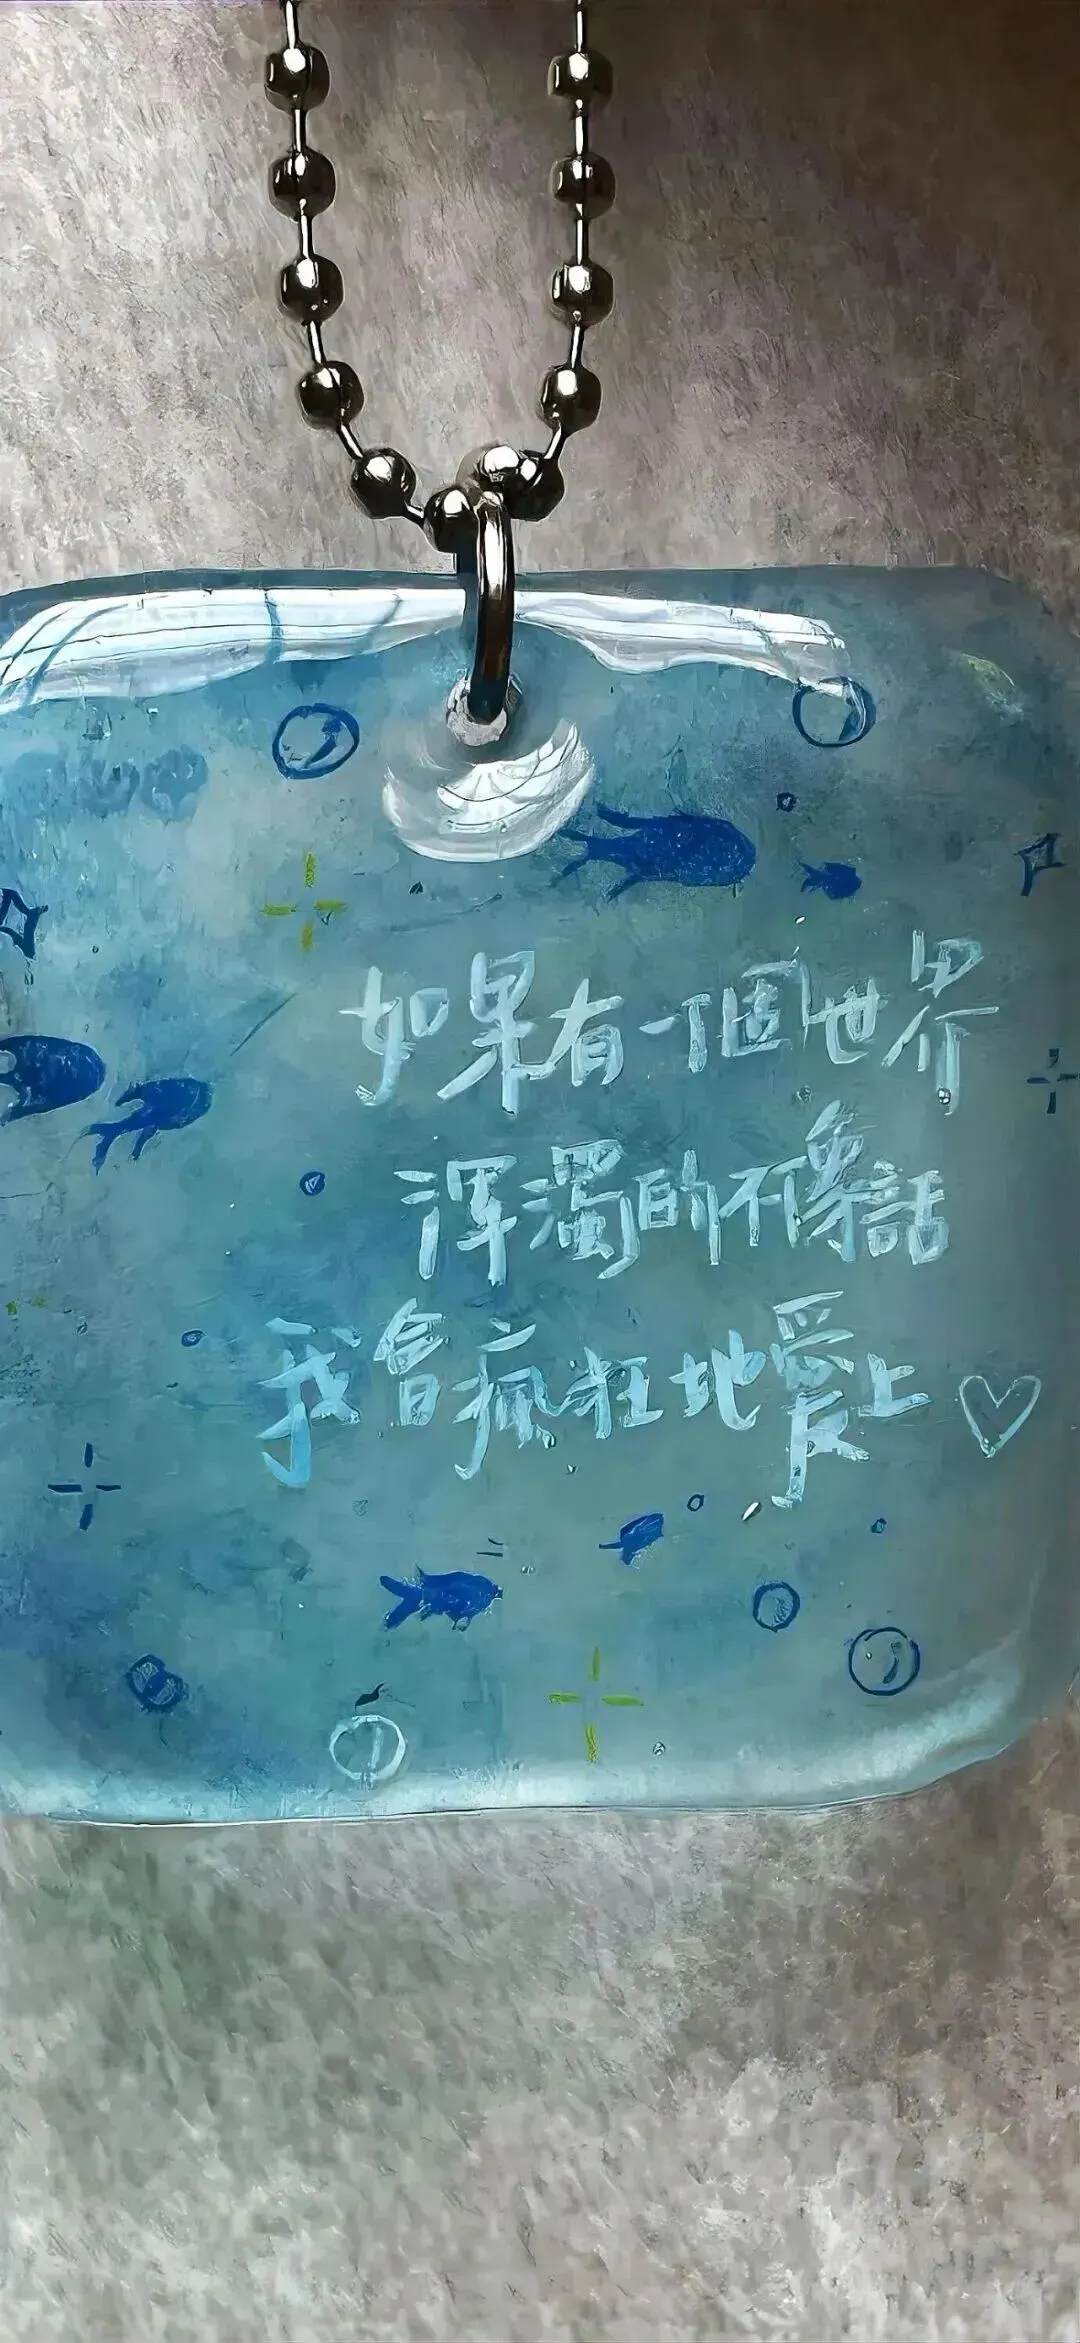 如果有一個世界
渾濁的不像話
我會瘋狂地愛上